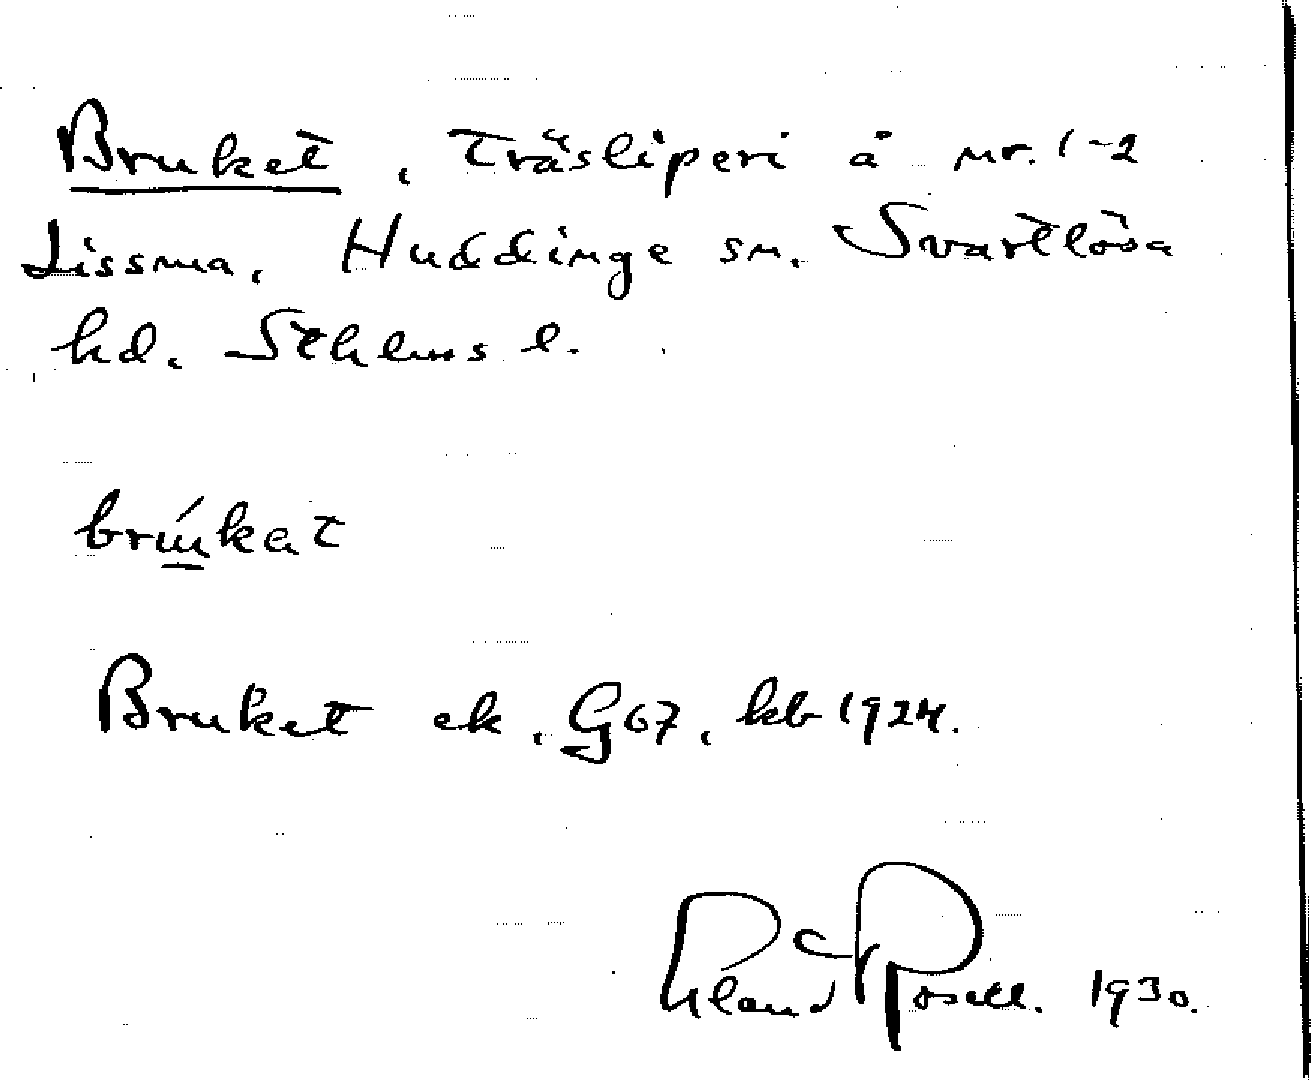 Bruket, Träsliperi å nr. 1-2
Lissma, Huddinge sn. Svartlösa
hd. Sthlms l.
brúkat
Bruket ek, G 67, kb 1924.
Rosell. 1930.